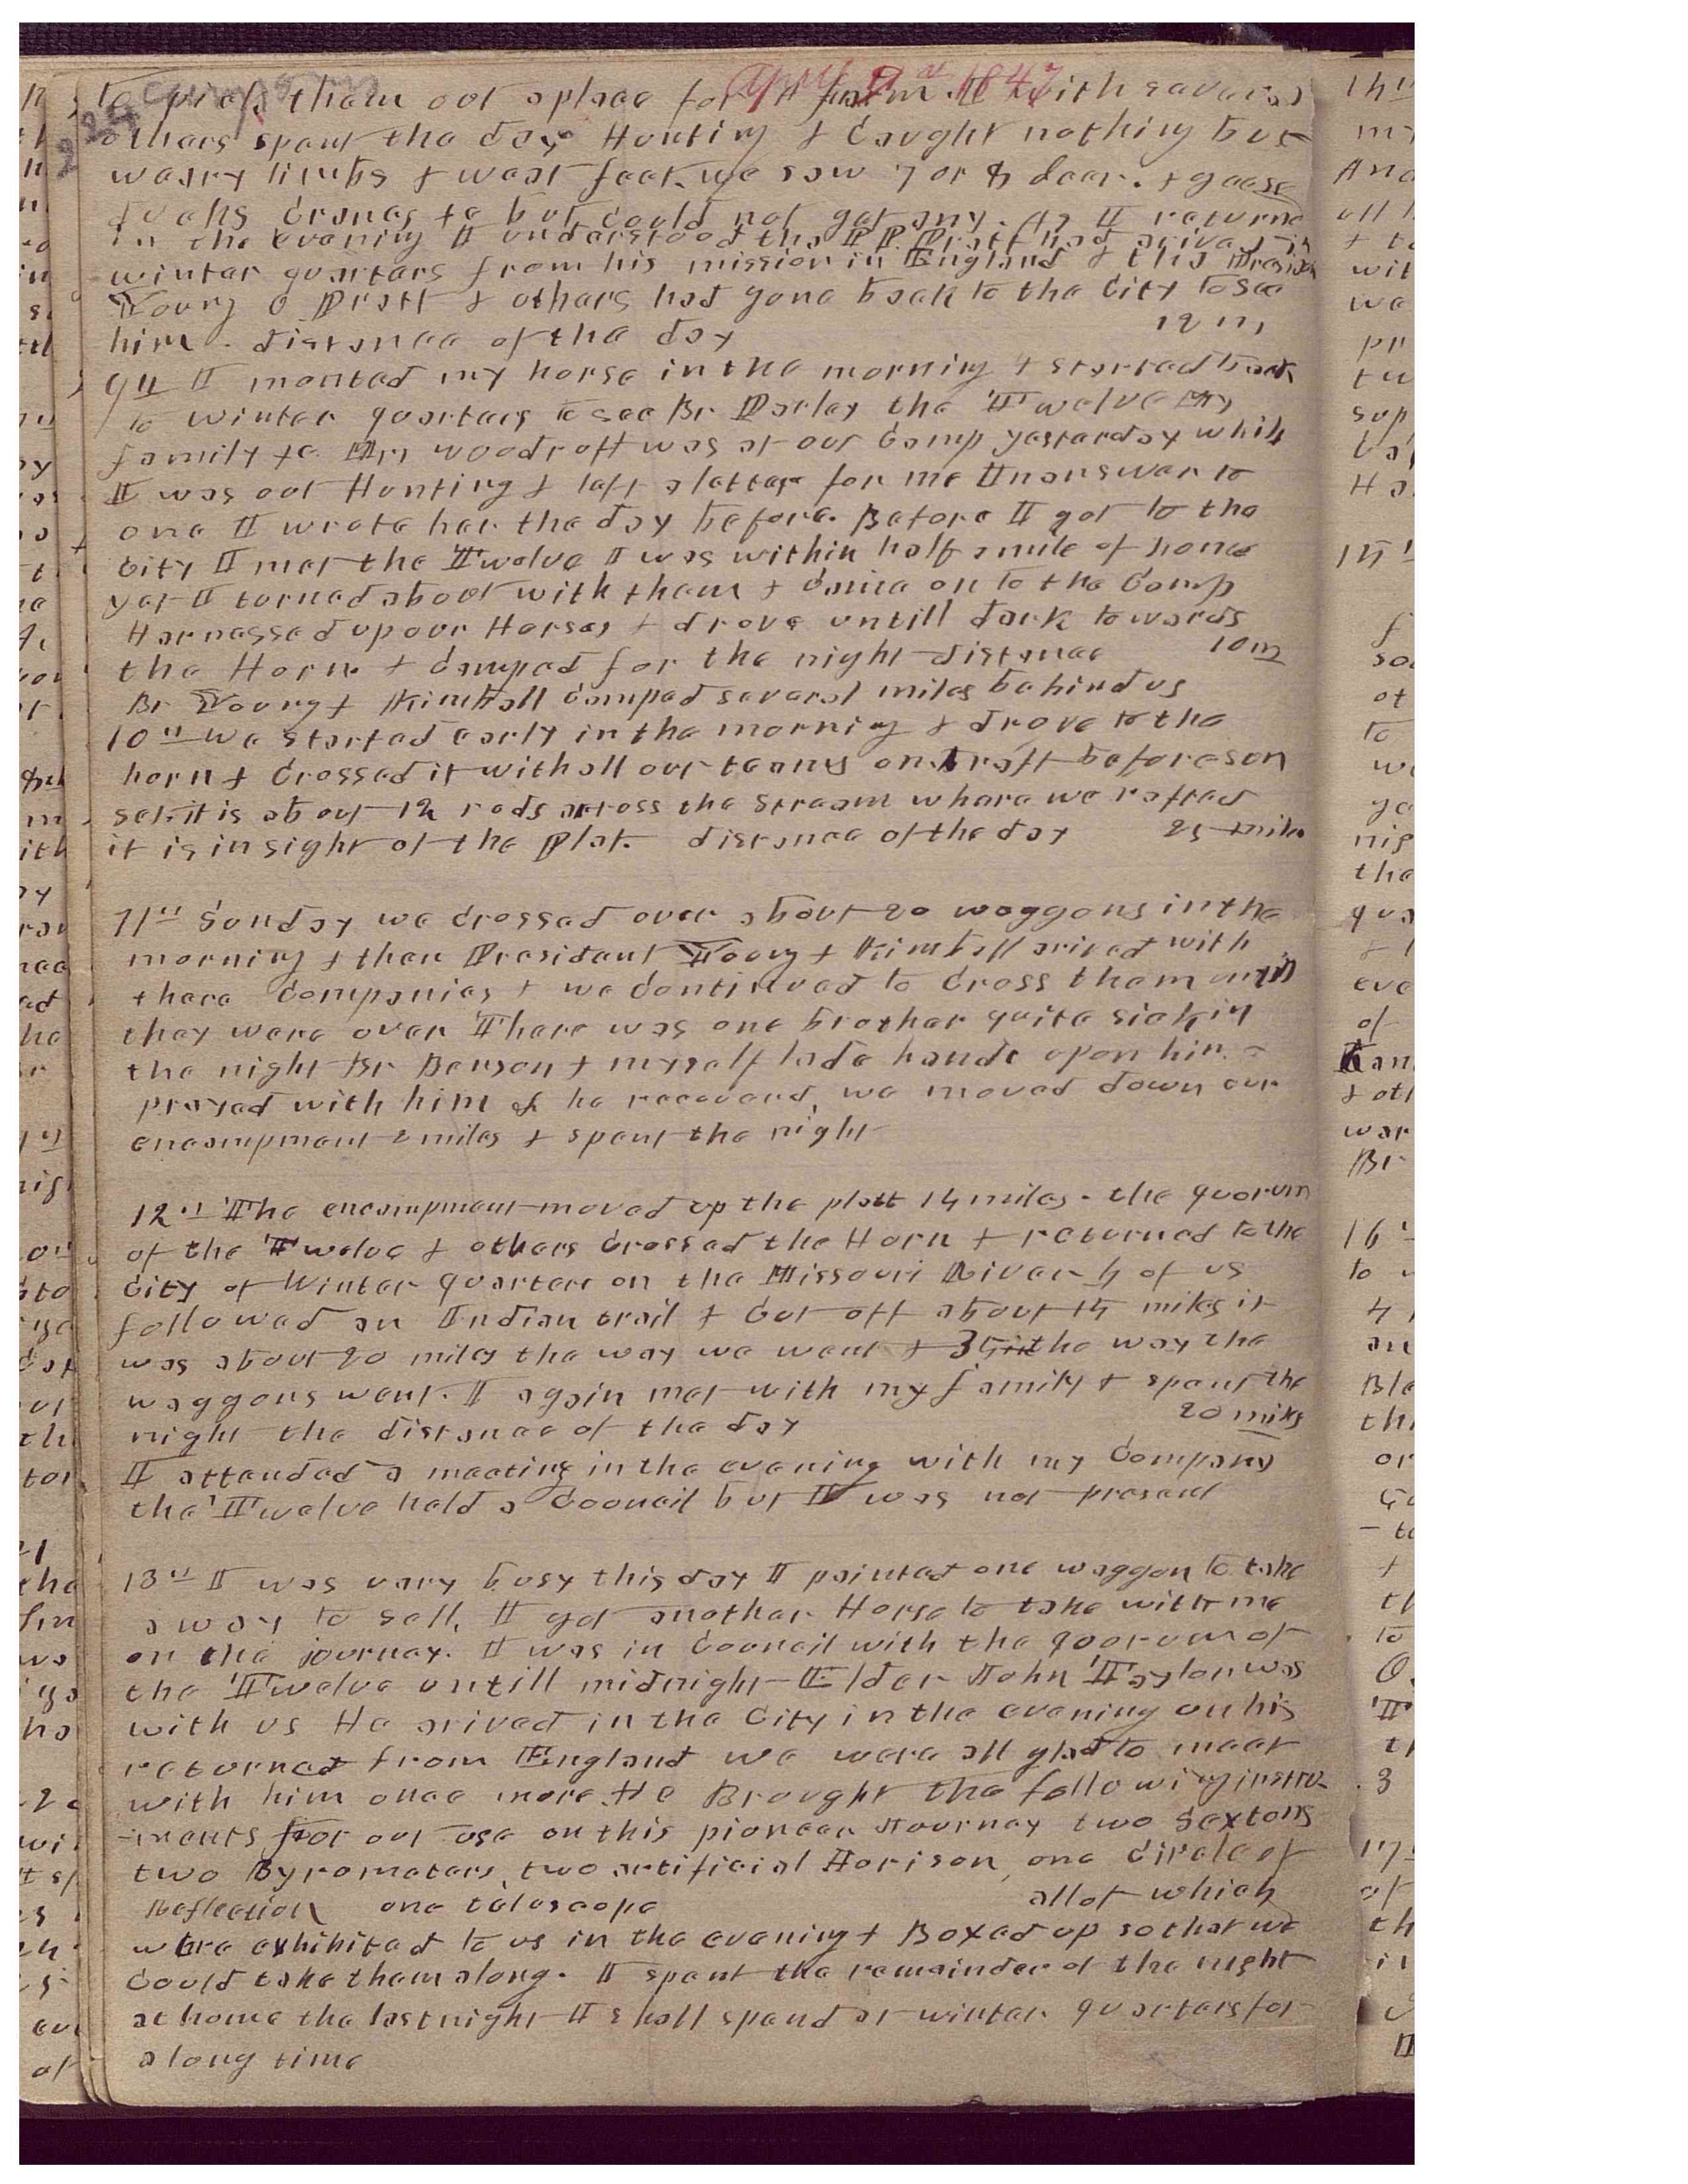 April 9th 1847
to pick them out a place for A farm. I with several
others spent the day Hunting & Caught nothing but
weary limbs & weat feet. we saw 7 or 8 dear. & geese
ducks Cranes &c but could not get any. As I returned
in the evening I understood tha P P Pratt had arived in
winter quarters from his mission in England & tha Presidet
Young O Pratt & others had gone back to the City to see
him. distance of the day 12 m
9th I mounted my horse in the morning & started back
to winter quarters to see Br Parley the Twelve my
family &c Mrs woodruff was at our Camp yesterday while
I was out Hunting & left a letter for me In answer to
one I wrote her the day before. Before I got to the
City I met the Twelve I was within half a mile of home
yet I turned about with them & Came on to the Camp
Harnassed up our Horses & drove untill dark towards
the Horn & Camped for the night distance 10 m
Br Young & Kimball Camped several miles behind us
10th we started early in the morning & drove to the
horn & Crossed it with all our teams on a raft before son
set. it is about 12 rods across the stream whare we rafted
it is in sight of the Plat. distance of the day 25 mile
11th Sunday we Crossed over about 20 waggons in the
morning & then Presidant Young & Kimball arived with
there Companies & we Continued to Cross them untill
they were over There was one brother quite sick in
the night Br Benson & myself lade hands upon him &
prayed with him & he recoverd, we moved down our
encampment 2 miles & spent the night
12th The encampment moved up the platt 14 miles. the quorum
of the Twelve & others Crossed the Horn & returned to the
City of Winter quarters on the Missouri River 4 of us
followed an Indian trail & Cut off about 15 miles it
was about 20 miles the way we went & 35 the way the
waggons went. I again met with my family & spent the
night the distance of the day 20 miles
I attended a meeting in the evening with my Company
the Twelve held a Council but I was not present
13th I was vary busy this day I painted one waggon to take
away to sell, I got another Horse to take with me
on the journey. I was in Council with the quorum of
the Twelve untill midnight Elder John Taylor was
with us He arived in the City in the evening on his
returned from England we were all glad to meet
with him once more. He Brought the following instru-
-ments for our use on this pioneer Journey two Sextons
two Byrometers, two artificial Horison, one Circle of
Reflection one teloscope all of which
were exhibited to us in the evening & Boxed up so that we
Could take them along. I spent the remainder of the night
at home the last night I shall spend at winter quarters for
a long time